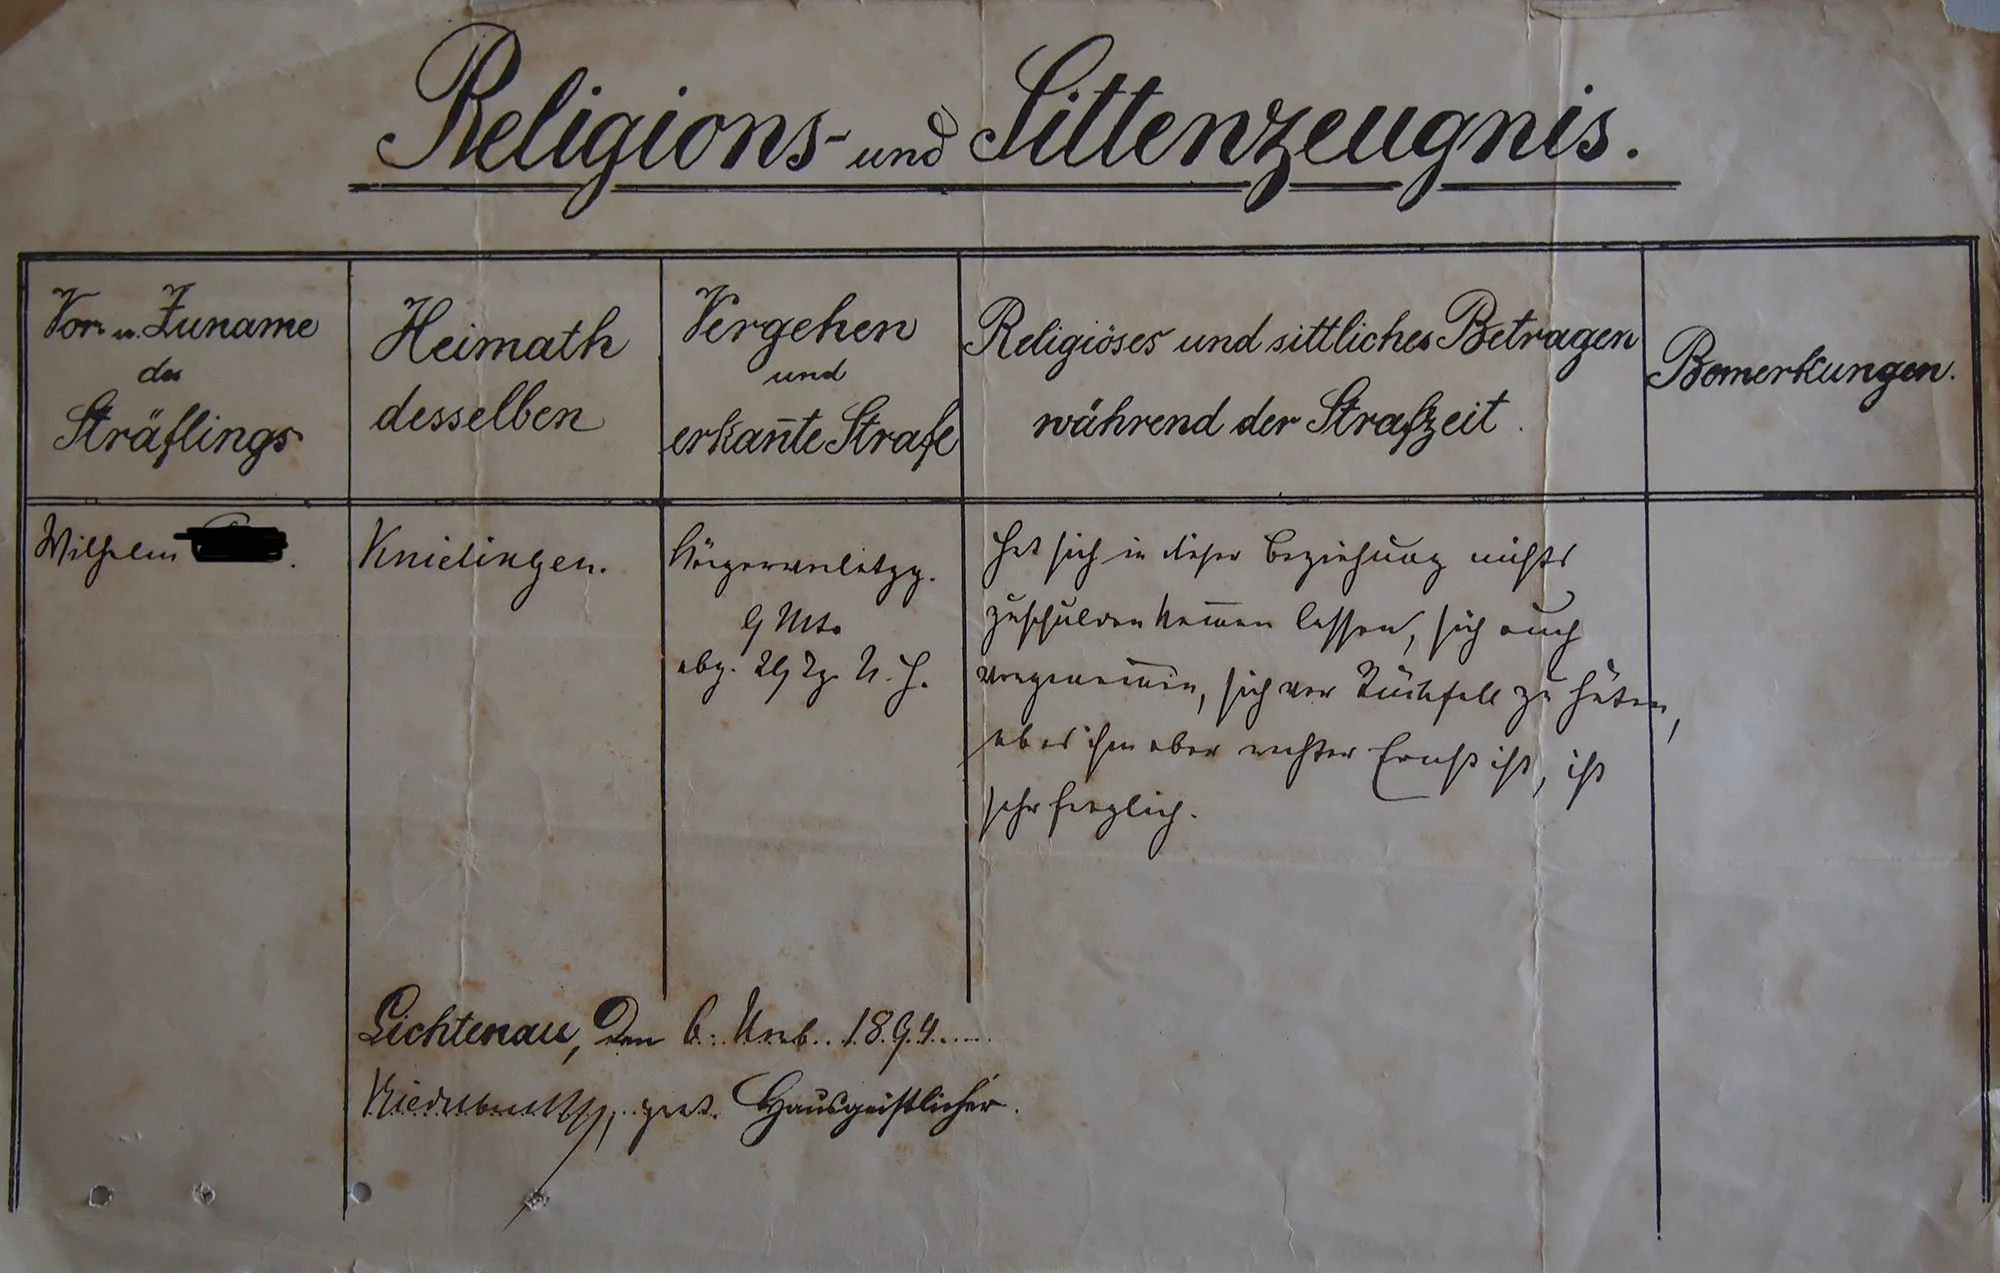 Religions- und Sittenzeugnis.
Vor- u. Zuname
des
Sträflings
Heimath
desselben
Vergehen
und
erkan̄te Strafe
Religiöses und sittliches Betragen
während der Strafzeit.
Bemerkungen.
Wilhelm
Knielingen.
Körperverletzg.
9 Mt.
abg. U. H.
Hat sich in dieser Beziehung nichts
zuschulden kom̄en lassen, sich auch
vorgenom̄en, sich vor Rückfall zu hüten,
ob es ihm aber rechter Ernst ist, ist
sehr fraglich.
Lichtenau, den 6. Novb. 1894
Hausgeistlicher.